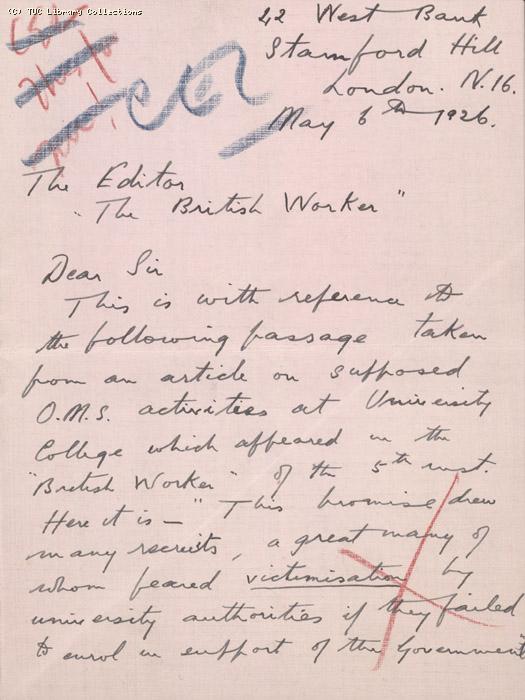 (c) TUC Library Collections
42 West Bank
Stamford Hill
London. N.16.
May 6th 1926.
The Editor
"The British Worker"
Dear Sir
This is with reference to
the following passage taken
from an article on supposed
O.M.S. activities at University
College which appeared in the
"British Worker" of the 5th inst.
Here it is — "This promise drew
many recruits, a great many of
whom feared victimisation by
university authorities if they failed
to enrol in support of the Government